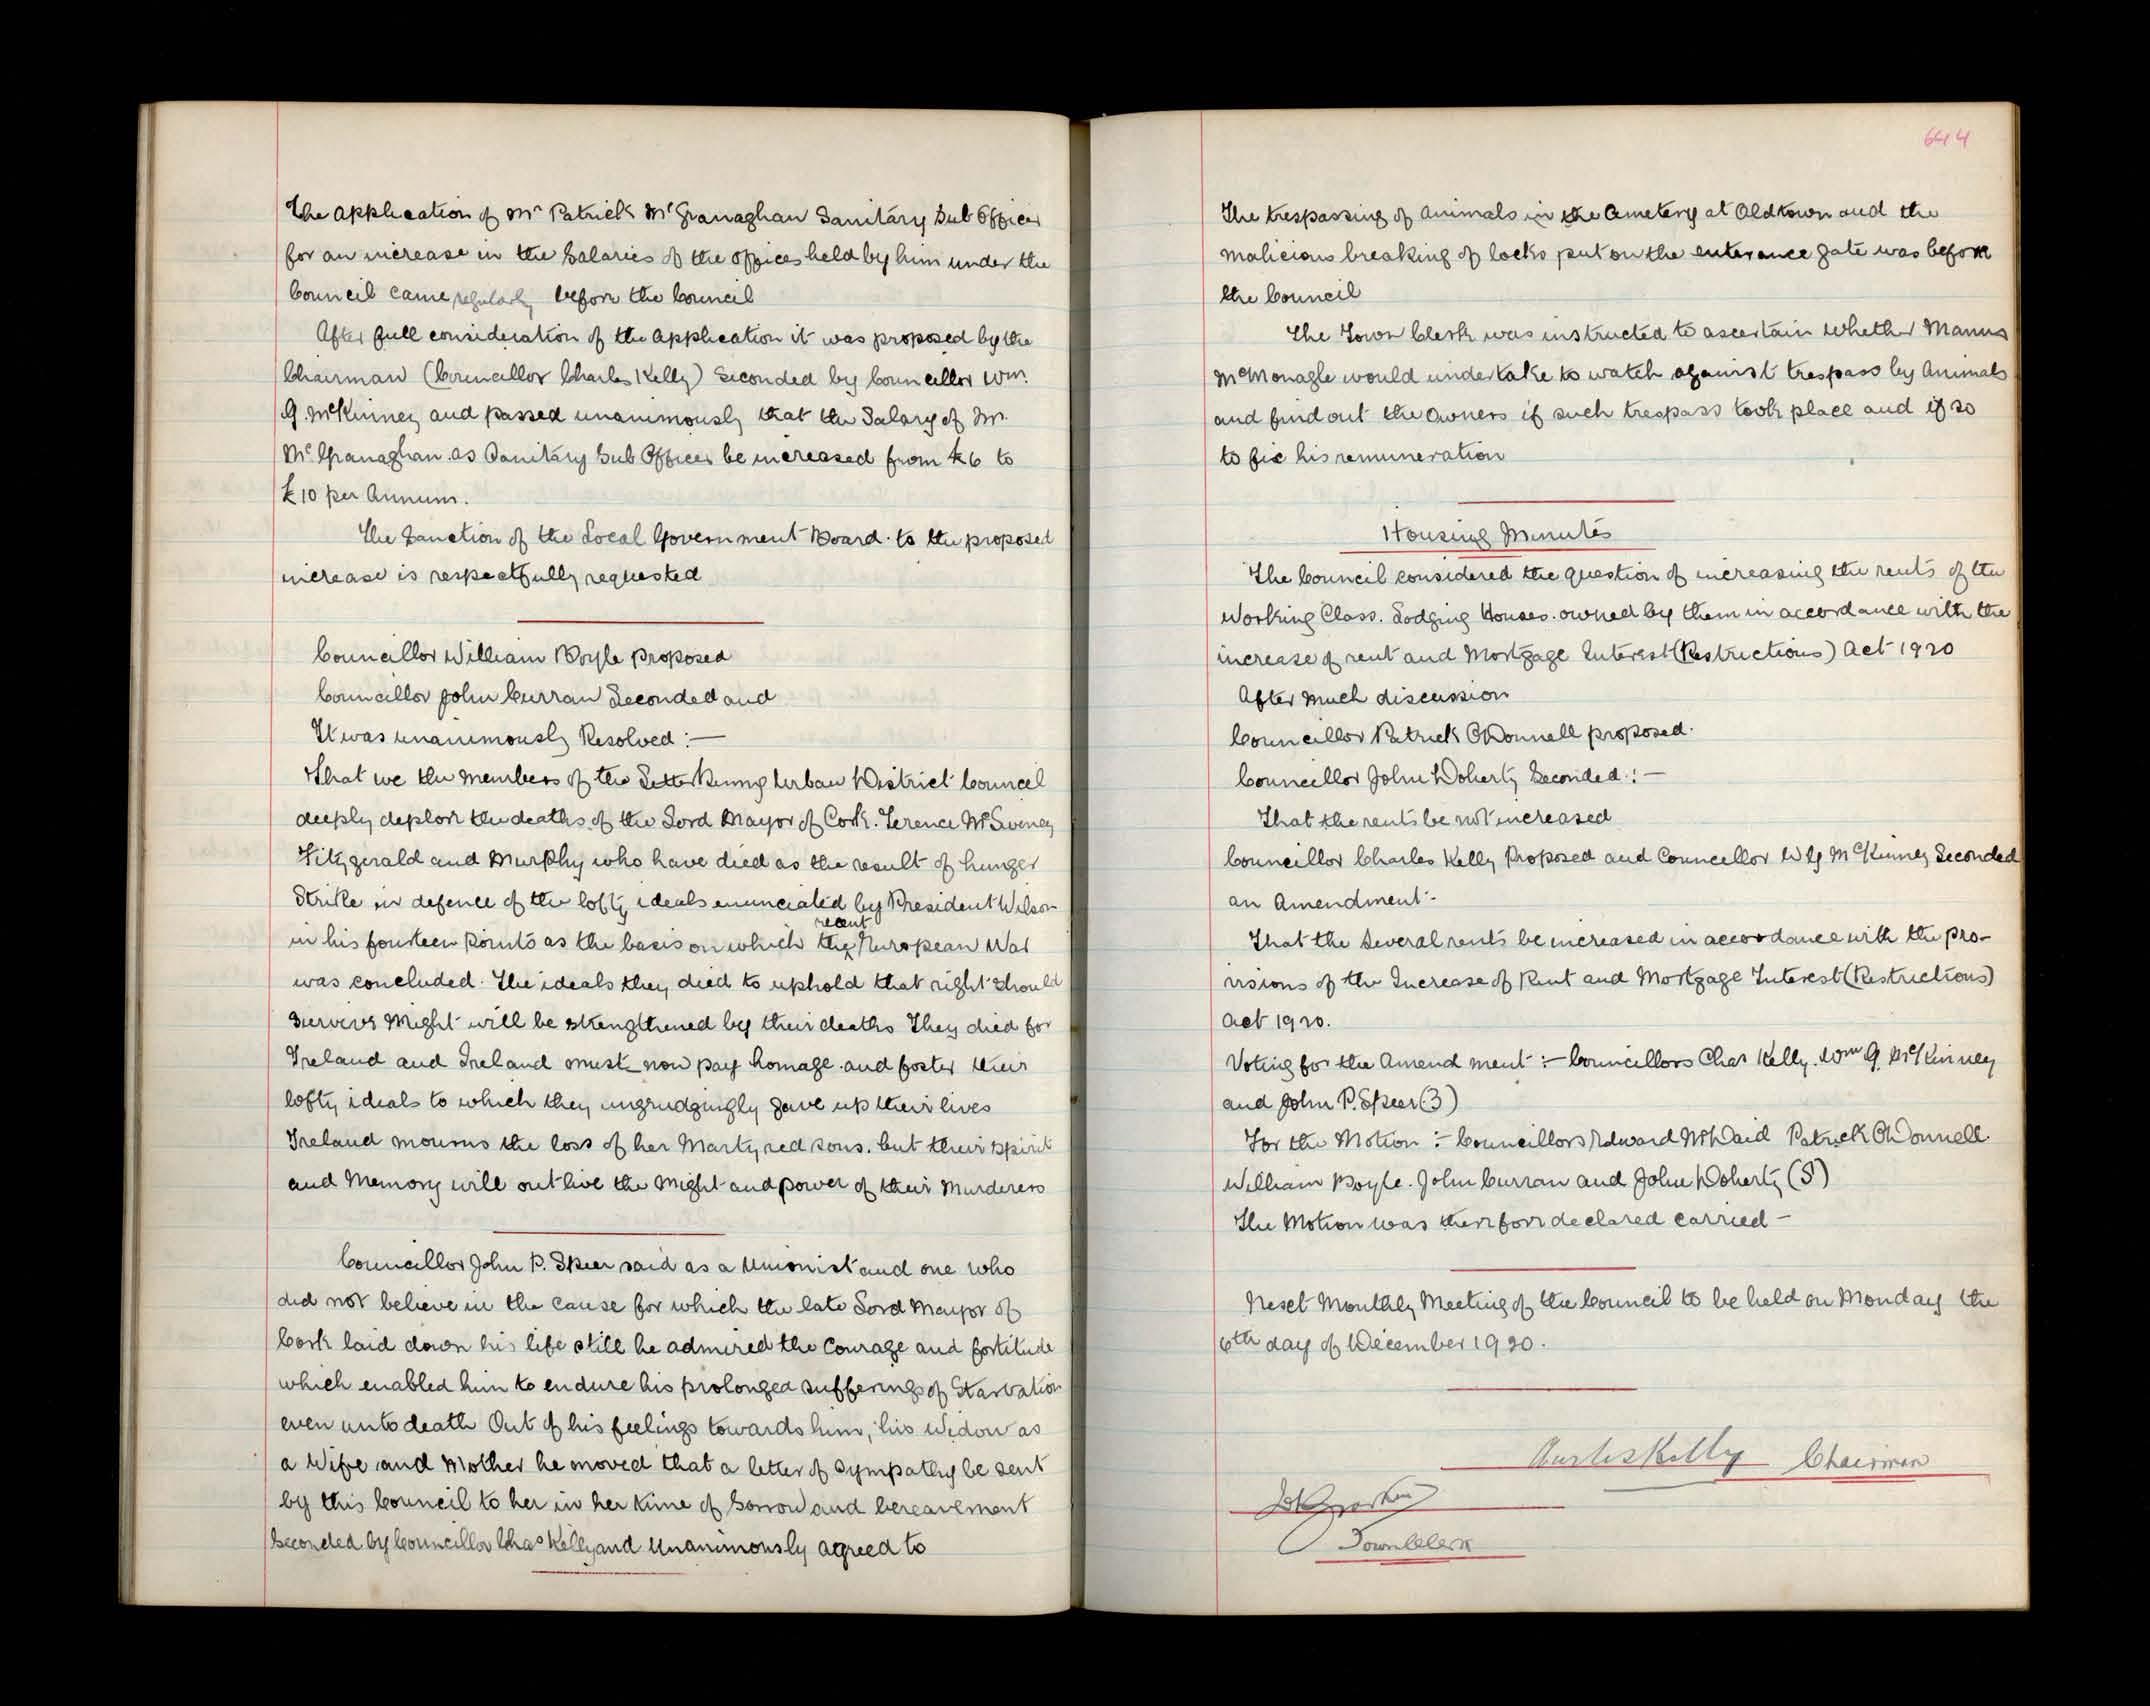 The application of Mr Patrick McGranaghan Sanitary Sub Officer
for an increase in the Salaries of the offices held by him under the
Council came regularly before the Council
After full consideration of the application it was proposed by the
Chairman (Councillor Charles Kelly) Seconded by Councillor Wm.
G. McKinney and passed unanimously that the Salary of Mr.
McGranaghan as Sanitary Sub Officer be increased from £6 to
£10 per Annum.
The Sanction of the Local Government Board to the proposed
increase is respectfully requested
Councillor William Boyle proposed
Councillor John Curran Seconded and
It was unanimously Resolved :—
That we the members of the Letterkenny Urban District Council
deeply deplore the deaths of the Lord Mayor of Cork. Terence McSwiney
Fitzgerald and Murphy who have died as the result of hunger
Strike in defence of the lofty ideals enunciated by President Wilson
recent
in his fourteen points as the basis on which the European War
was concluded. The ideals they died to uphold that right should
survive Might will be strengthened by their deaths They died for
Ireland and Ireland must now pay homage and foster their
lofty ideals to which they ungrudgingly gave up their lives
Ireland mourns the loss of her Martyred sons. but their spirit
and Memory will outlive the Might and power of their Murderers
Councillor John P. Speer said as a Unionist and one who
did not believe in the cause for which the late Lord Mayor of
Cork laid down his life still he admired the Courage and fortitude
which enabled him to endure his prolonged sufferings of Starvation
even unto death Out of his feelings towards him, his Widow as
a Wife and Mother he moved that a letter of sympathy be sent
by this Council to her in her time of Sorrow and bereavement
Seconded by Councillor Chas Kelly and Unanimously agreed to
644
The trespassing of animals in the Cemetery at Oldtown and the
malicious breaking of locks put on the enterance gate was before
the Council
The Town Clerk was instructed to ascertain whether Manus
McMonagle would undertake to watch against trespass by Animals
and find out the owners if such trespass took place and if so
to fix his remuneration
Housing Minutes
The Council considered the question of increasing the rents of the
Working Class. Lodging Houses. owned by them in accordance with the
increase of rent and Mortgage Interest (Restructions) Act 1920
After much discussion
Councillor Patrick O'Donnell proposed.
Councillor John Doherty Seconded :—
That the rents be not increased
Councillor Charles Kelly Proposed and Councellor W G McKinney Seconded
an Amendment.-
That the Several rents be increased in accordance with the pro-
visions of the Increase of Rent and Mortgage Interest (Restructions)
Act 1920.
Voting for the Amendment :— Councillors Chas Kelly. Wm G. McKinney
and John P. Speer (3)
For the Motion :— Councillors Edward McDaid Patrick O'Donnell.
William Boyle. John Curran and John Doherty (5)
The Motion was therefore declared carried —
Next Monthly Meeting of the Council to be held on Monday the
6th day of December 1920.
Charles Kelly Chairman
Town Clerk